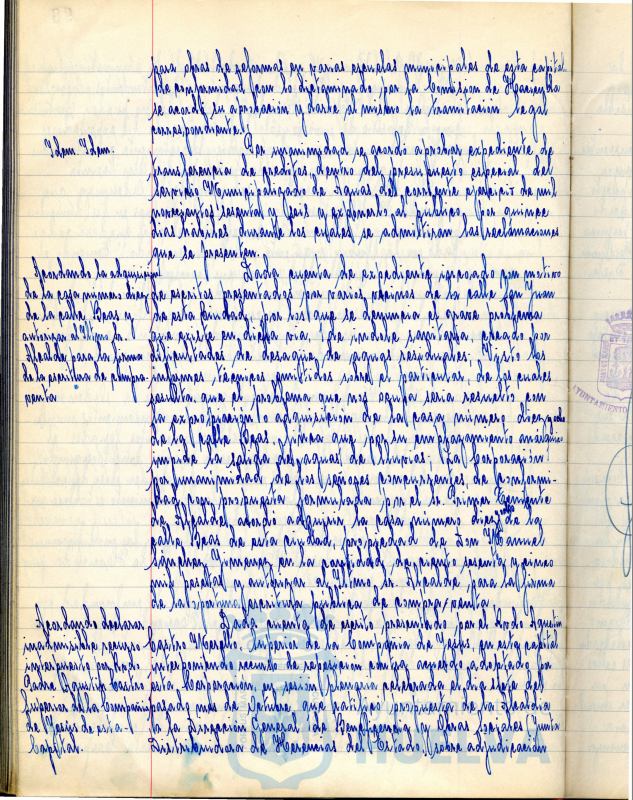 para obras de reformas en varias escuelas municipales de esta capital
de conformidad con lo dictaminado por la Comision de Hacienda
se acordó su aprobación y darle al mismo la tramitación legal
correspondiente.
Idem Idem.
Por unanimidad se acordó aprobar expediente de
transferencia de creditos, dentro del presupuesto especial del
Servicio Municipalizado de Aguas del corriente ejercicio de mil
novecientos sesenta y seis y exponerlo al público por quince
dias hábiles durante los cuales se admitiran las reclamaciones
que se presenten.
Acordando la adquisición
de la casa número diez
de la calle Beas y
autorizar al Iltmo Sr.
Alcalde para la firma
de la escritura de compra
venta
Dada cuenta de expediente incoado con motivo
de escritos presentados por varios vecinos de la calle San Juan
de esta Ciudad, por los que se denuncia el grave problema
que existe en dicha via, de indole sanitaria, creado por
dificultades de desagüe de aguas residuales; Visto los
informes tecnicos emitidos sobre el particular, de los cuales
resulta que el problema que nos ocupa seria resuelto con
la expropiación o adquisición de la casa número diez
de la calle Beas, finca que por su emplazamiento
impide la salida de aguas de lluvias; La Corporación
por unanimidad de los señores concurrentes, de conformi-
dad con propuesta formulada por el Sr. Primer Teniente
de Alcalde acordó adquirir la casa número diez de la
calle Beas de esta ciudad, propiedad de Don Manuel
Sanchez Jimenez en la cantidad de ciento sesenta y cinco
mil pesetas y autorizar al Iltmo Sr. Alcalde para la firma
de la oportuna escritura pública de compra/venta.
Acordando declarar
inadmisible recurso
interpuesto por Rvdo
Padre Agustin Castro
Superior de la Compañia
de Jesús de esta
Capital.
Dada cuenta de escrito presentado por el Rvdo Agustin
Castro Merello Superior de la Compañia de Jesús, en esta capital
interponiendo recurso de reposición contra acuerdo adoptado por
esta Corporación, en sesión plenaria celebrada el dia siete del
pasado mes de Octubre que ratificó propuesta de la Alcaldia
a la Dirección General de Beneficencia y Obras Sociales (Junta
Distribuidora de Herencias del Estado) sobre adjudicación
AYUNTAMIENTO
HUELVA